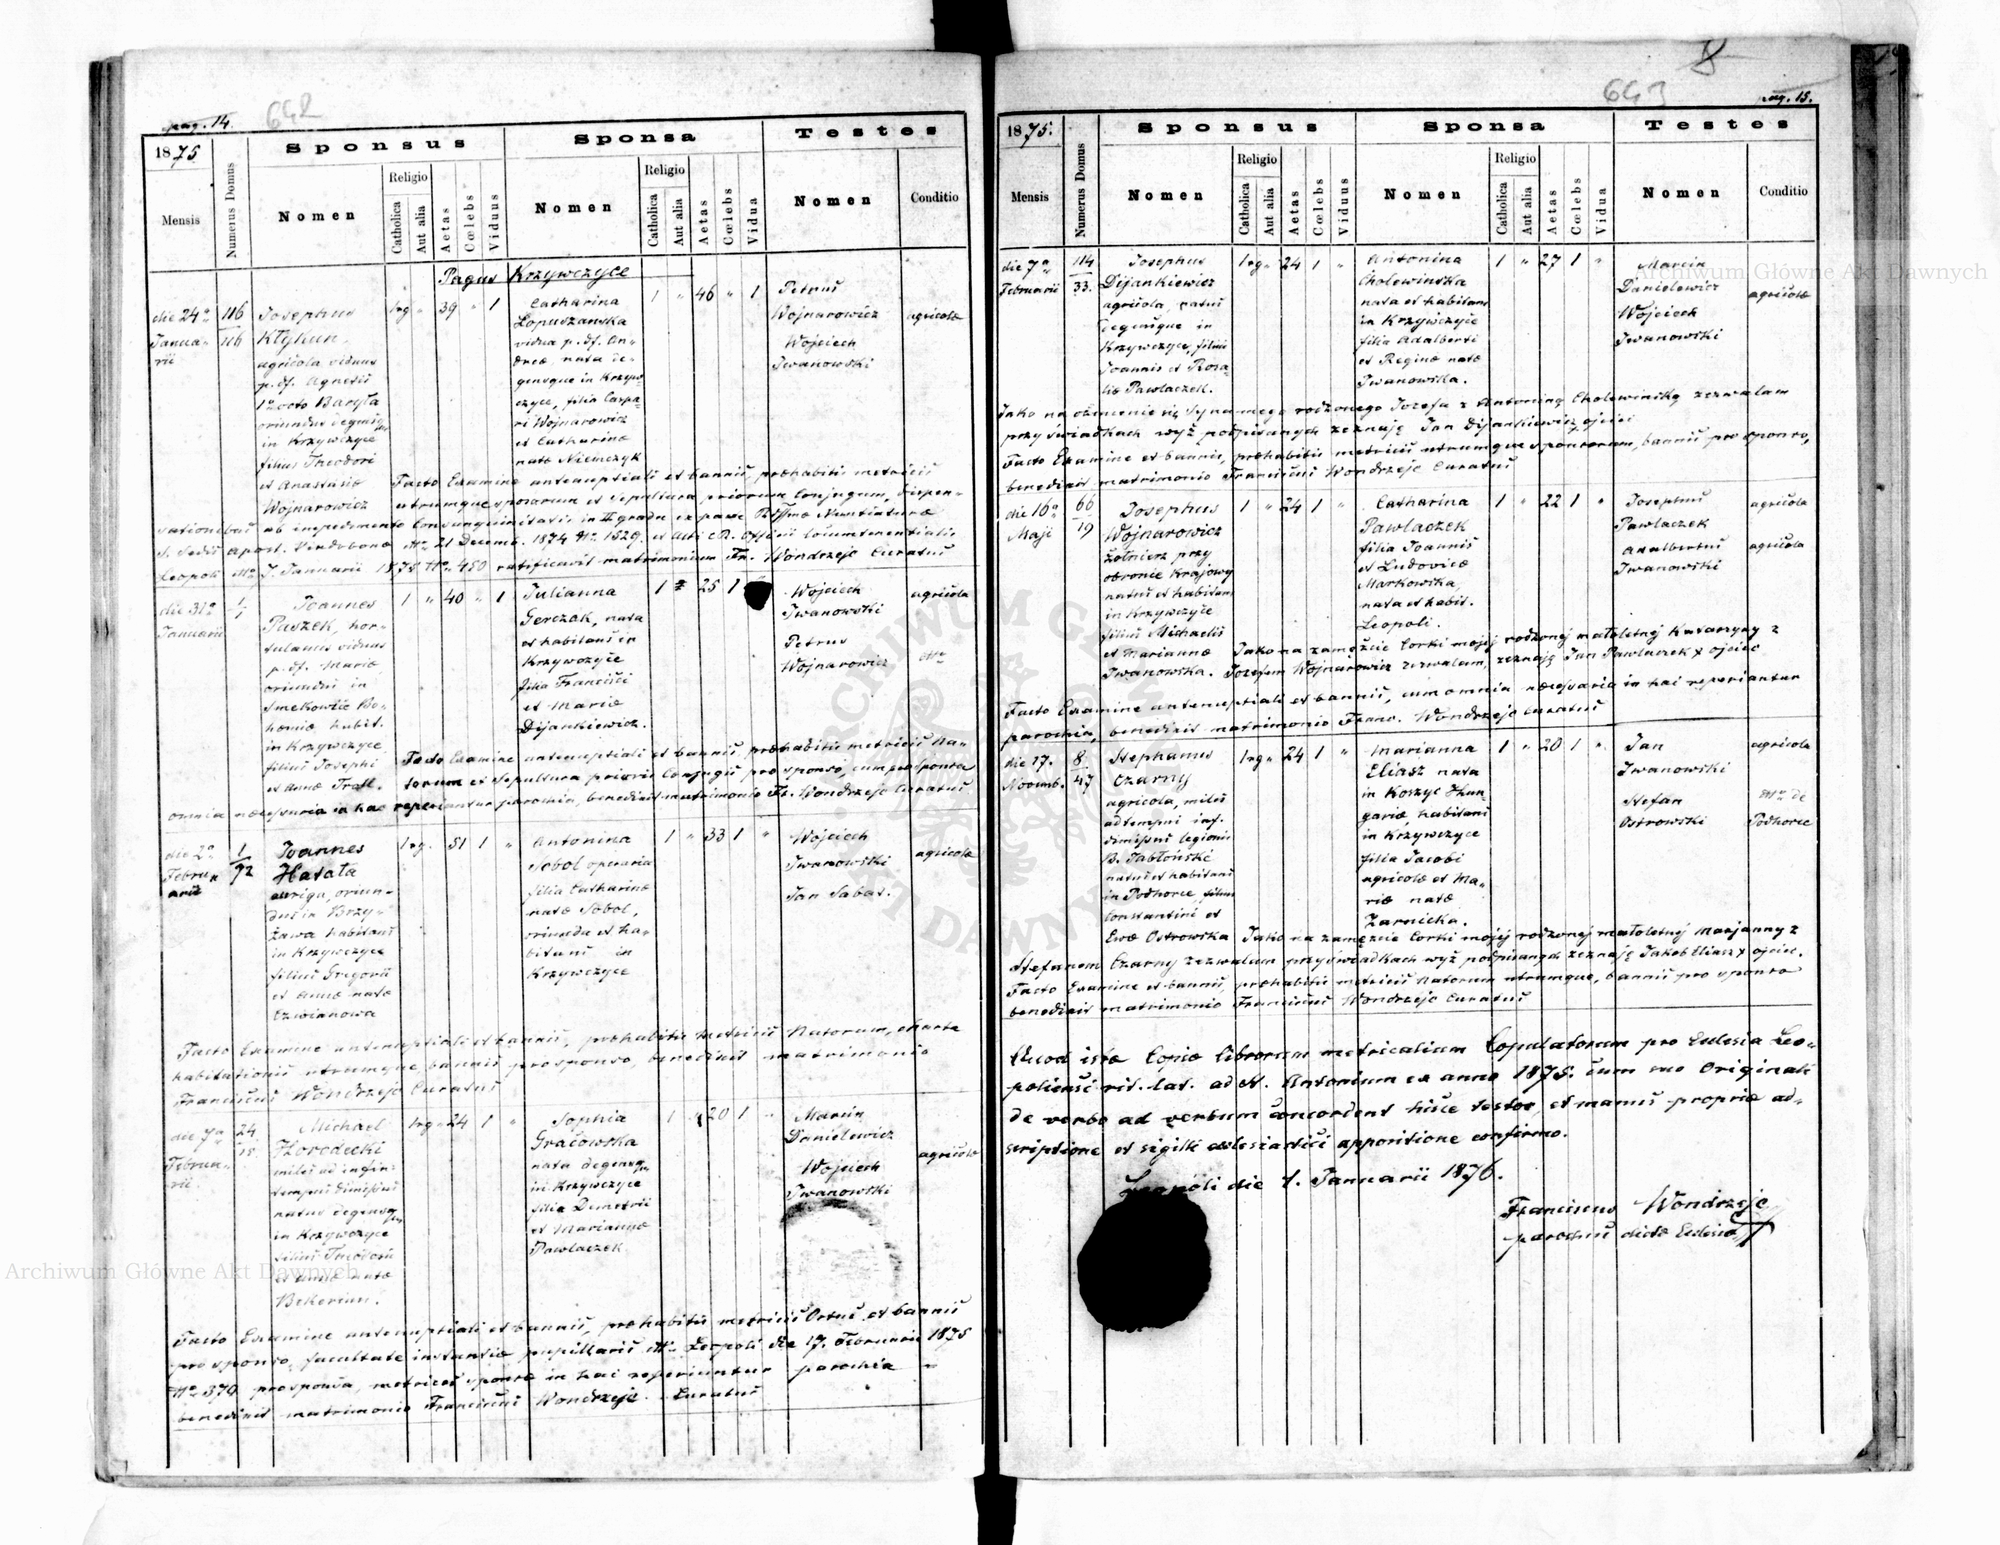 pag. 14.
642
1875
Numerus Domus
Sponsus
Sponsa
Testes
Mensis
Nomen
Religio
Catholica
Aut alia
Aetas
Cœlebs
Viduus
Nomen
Religio
Catholica
Aut alia
Aetas
Cœlebs
Vidua
Nomen
Conditio
Pagus Krzywczyce
die 24a
Janua-
rii
116
116
Josephus
agricola viduus
p. df. Agnetis
1o voto Baryła
oriundus
in Krzywczyce
filius Theodori
et Anastasiæ
Wojnarowicz
39 " 1
Catharina
Łopuszanska
vidua p. df. An-
dreæ nata de-
gensque in Krzyw-
czyce, filia Caspa-
ri Wojnarowicz
et Catharinæ
natæ Niemczyk
1 " 46 " 1
Petrus
Wojnarowicz
Wojciech
Iwanowski
agricolæ
Facto Examine antenuptiali et bannis, prohabitis metricis
utrumque sponsorum et sepultura priorum Conjugum, dispen-
sationibus ab impedimento Consanguinitatis in II gradu ex parte Nuntiaturæ
S. Sedis Apost. Vindobonæ 21 Decemb. 1874 No 1529. et
Leopoli Januarii 1875 No 450 ratificavit matrimonium Fr. Wondrzejc Curatus
die 31a
Januarii
1/1
Joannes
Paszek, hor-
tulanus viduus
p. df. Mariæ
oriundus in
Smekowic Bo-
hemiæ habit.
in Krzywczyce
filius Josephi
et Annæ
1 " 40 " 1
Julianna
Gerczak, nata
et habitans in
Krzywczyce
filia Francisci
et Mariæ
Dijankiewicz.
1 " 25 1
Wojciech
Iwanowski
Petrus
Wojnarowicz
agricola
Facto Examine antenuptiali et bannis, prohabitis metricis Na-
torum et Sepultura prioris Conjugis pro sponso, cum pro sponsa
omnia necessaria in hac reperiantur parochia, benedixit matrimonio Fr. Wondrzejc Curatus
die 2a
Febru-
arii
1
92
Joannes
Hałata
auriga, oriun-
dus in
habitans
in Krzywczyce
filius Gregorii
et Annæ natæ
Czwianowa
51 1 "
Antonina
Sobol operaria
filia Catharinæ
natæ Sobol,
oriunda et ha-
bitans in
Krzywczyce
1 " 33 1 "
Wojciech
Iwanowski
Jan Sabat.
agricolæ
Facto Examine antenuptiali et bannis, prohabitis metricis Natorum, charta
habitationis utrumque, bannis pro sponso, benedixit matrimonio
Franciscus Wondrzejc Curatus
die 7a
Februa-
rii
24
15
Michael
Horodecki
miles ad infin:
tempus dimissus
natus
in Krzywczyce
filius Theodori
et Annæ natæ
24 1 "
Sophia
Graćowska
nata
in Krzywczyce
filia Demetrii
et Mariannæ
Pawlaczek
1 " 20 1 "
Marcin
Danielewicz
Wojciech
Iwanowski
agricolæ
Facto Examine antenuptiali et bannis, prohabitis metricis Ortus et bannis
pro sponso, facultate instantiæ pupillaris Leopoli die 17. Februarii 1875
No 379 pro sponsa, metrices sponsæ in hac reperiuntur parochia
benedixit matrimonio Franciscus Wondrzejc Curatus
8
643
pag. 15.
1875.
Numerus Domus
Sponsus
Sponsa
Testes
Mensis
Nomen
Religio
Catholica
Aut alia
Aetas
Cœlebs
Viduus
Nomen
Religio
Catholica
Aut alia
Aetas
Cœlebs
Vidua
Nomen
Conditio
die 7a
Februarii
114
33.
Josephus
Dijankiewicz
agricola, natus
degensque in
Krzywczyce, filius
Joannis et Rosa-
liæ Pawlaczek.
24 1 "
Antonina
Cholewinska
nata et habitans
in Krzywczyce
filia Adalberti
et Reginæ natæ
Iwanowska.
1 " 27 1 "
Marcin
Danielewicz
Wojciech
Iwanowski
agricolæ
Jako na ożenienie się Syna mego rodzonego Jozefa z Antoniną Cholewinską zezwalam
przy świadkach wyż podpisanych zeznaję Jan Dijankiewicz ojciec
Facto Examine et bannis, prohabitis metricis utrumque sponsorum, bannis pro sponso,
benedixit matrimonio Franciscus Wondrzejc Curatus
die 16a
Maji
66
19
Josephus
Wojnarowicz
Żołnierz przy
obronie Krajowej
natus et habitans
in Krzywczyce
filius Michaelis
et Mariannæ
Iwanowska.
1 " 24 1 "
Catharina
Pawlaczek
filia Joannis
et Ludovicæ
Markowska,
nata et habit.
Leopoli.
1 " 22 1 "
Josephus
Pawlaczek
Adalbertus
Iwanowski
agricola
agricola
Jako na zamęźcie Corki mojej rodzonej małoletniej Katarzyny z
Jozefem Wojnarowicz zezwalam, zeznaję Jan Pawlaczek x ojciec
Facto Examine antenuptiali et bannis, cum omnia necessaria in hac reperiantur
parochia, benedixit matrimonio Franc. Wondrzejc Curatus
die 17.
Novemb.
8
47
Stephanus
Czarny
agricola, miles
ad tempus inf.
dimissus legionis
B. Jabłoński
natus et habitans
in Podhorce, filius
Constantini et
Evæ Ostrowska
24 1 "
Marianna
Eliasz nata
in Koszyc Hun-
gariæ, habitans
in Krzywczyce
filia Jacobi
agricolæ et Ma-
riæ natæ
Zarnicka.
1 " 20 1 "
Jan
Iwanowski
Stefan
Ostrowski
agricola
de
Podhorce
Jako na zamęzcie Corki mojej rodzonej małoletniej Marjanny z
Stefanem Czarny zezwalam przy świadkach wyż podpisanych zeznaję Jakob Eliasz x ojciec.
Facto Examine et bannis, prohabitis metricis Natorum utrumque, bannis pro sponso
benedixit matrimonio Franciscus Wondrzejc Curatus
Quod istæ Copiæ librorum metricalium Copulatorum pro Ecclesia Leo-
poliensi rit. lat. ad S. Antonium ex anno 1875. cum suo Originali
de verbo ad verbum concordent hisce testor, et manus propriæ ad-
scriptione et sigilli ecclesiastici appositione confirmo.
Leopoli die 1. Januarii 1876.
Franciscus Wondrzejc
parochus dictæ Ecclesiæ
Archiwum Główne Akt Dawnych
Archiwum Główne Akt Dawnych
ARCHIWUM GŁÓWNE AKT DAWNYCH